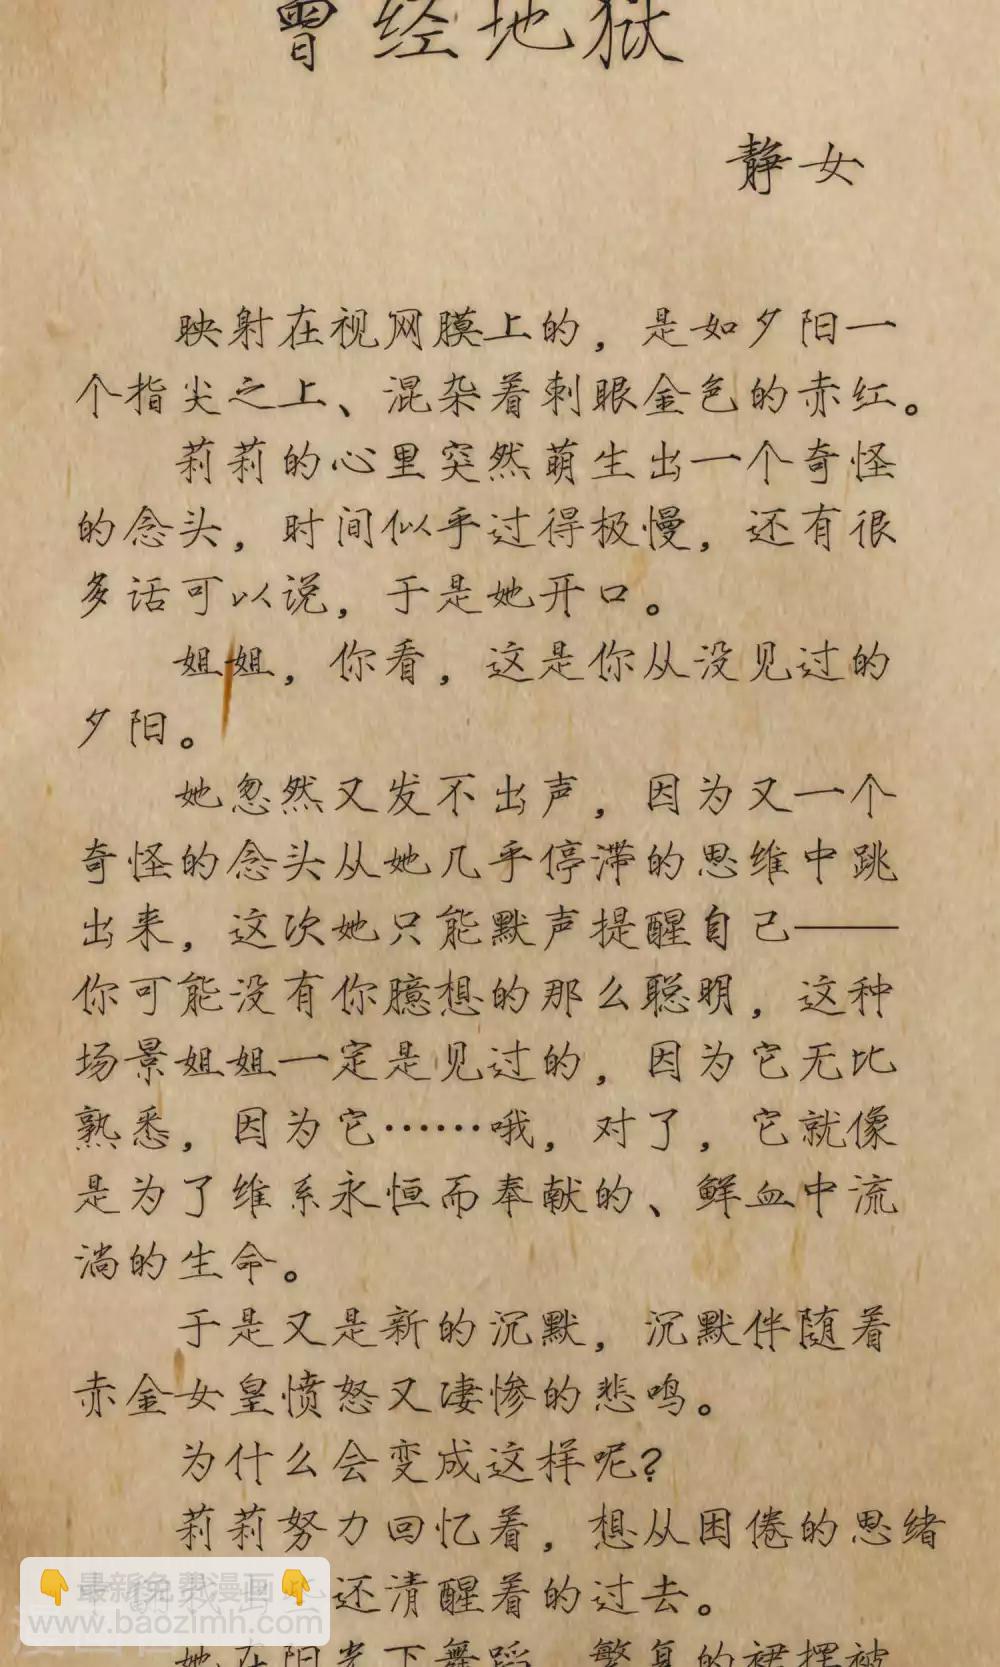 曾经地狱
静女
映射在视网膜上的，是如夕阳一
个指尖之上、混杂着刺眼金色的赤红。
莉莉的心里突然萌生出一个奇怪
的念头，时间似乎过得极慢，还有很
多话可以说，于是她开口。
姐姐，你看，这是你从没见过的
夕阳。
她忽然又发不出声，因为又一个
奇怪的念头从她几乎停滞的思维中跳
出来，这次她只能默声提醒自己——
你可能没有你臆想的那么聪明，这种
场景姐姐一定是见过的，因为它无比
熟悉，因为它……哦，对了，它就像
是为了维系永恒而奉献的、鲜血中流
淌的生命。
于是又是新的沉默，沉默伴随着
赤金女皇愤怒又凄惨的悲鸣。
为什么会变成这样呢？
莉莉努力回忆着，想从困倦的思绪
还清醒着的过去。
👇最新免费漫画👇
www.baozimh.com
她在阳光下舞蹈，繁复的裙摆被